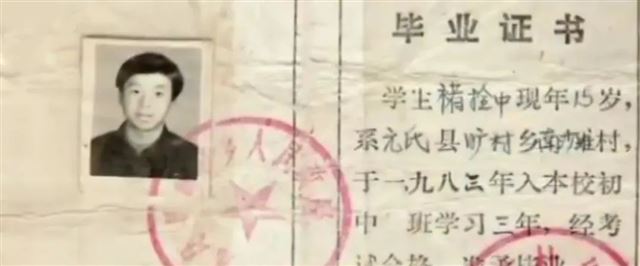 毕业证书
学生褚拴中现年15岁,
系元氏县 村乡南 村,
于一九八三年入本校初
中 班学习三年,经考
试合格,准予毕业
乡人民